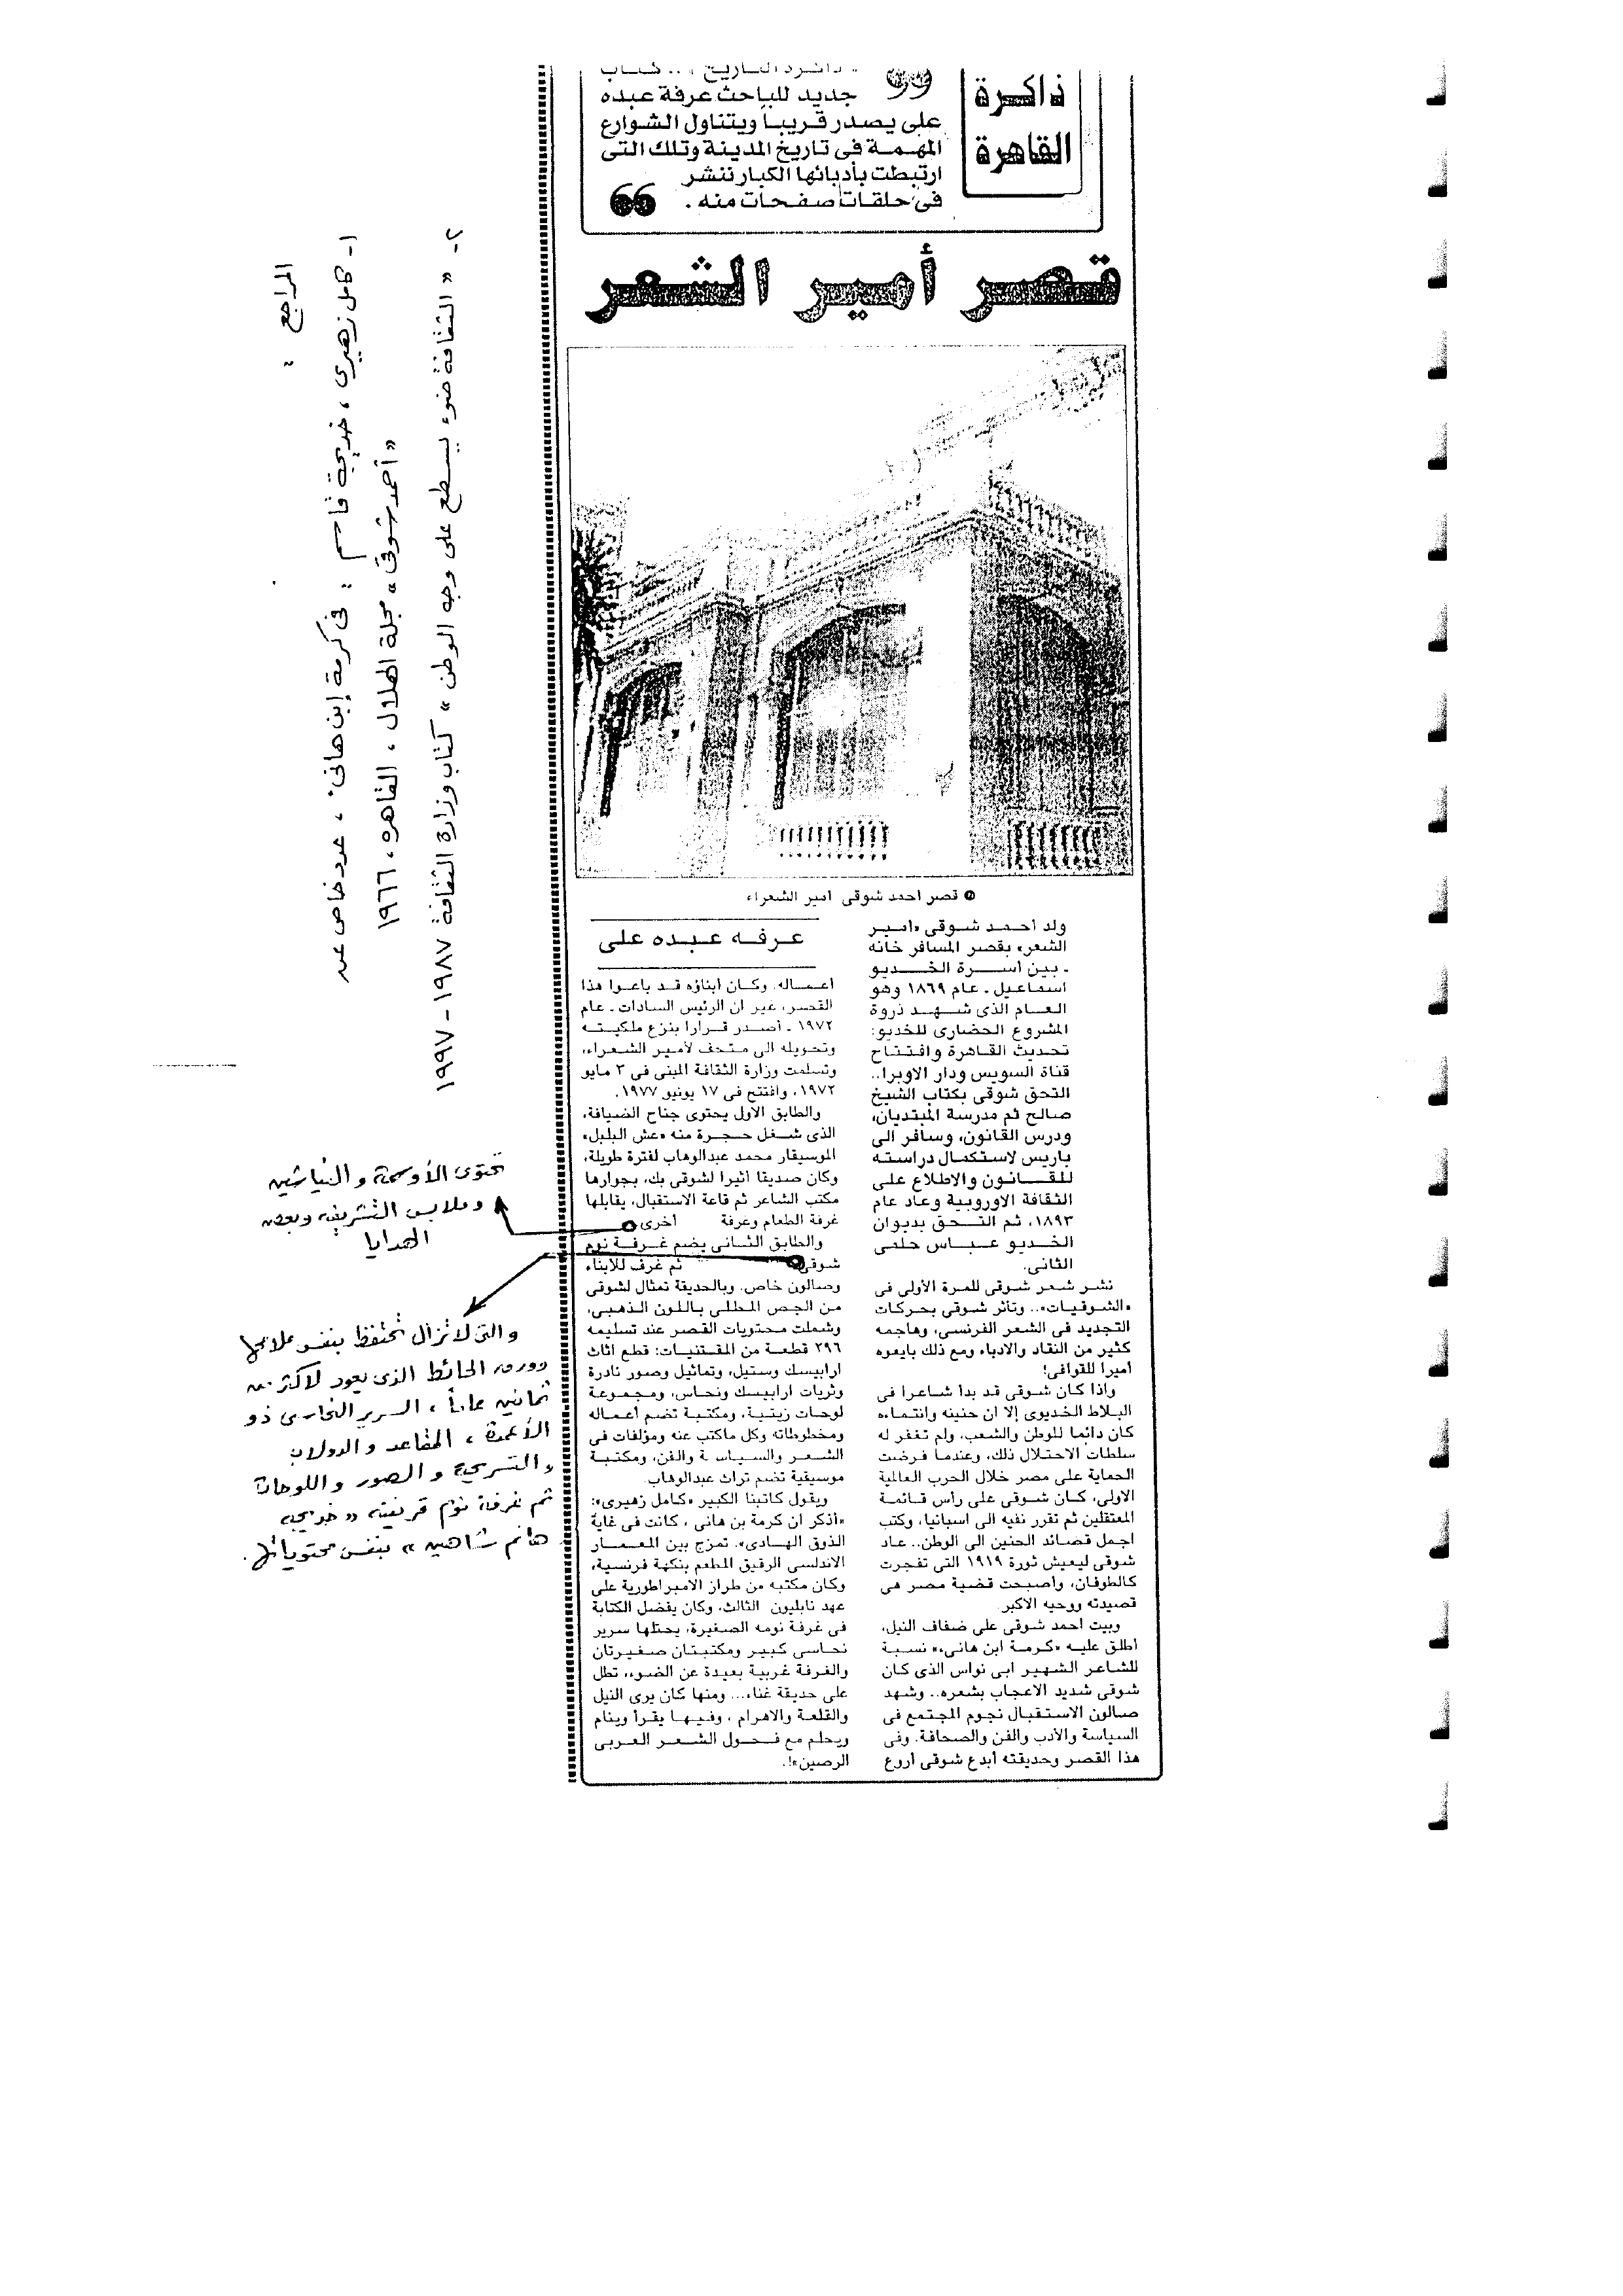 ذاكرة
القاهرة
« ذاكرة التاريخ » .. كتاب
جديد للباحث عرفة عبده
على يصدر قريباً ويتناول الشوارع
المهمة فى تاريخ المدينة وتلك التى
ارتبطت بأدبائها الكبار ننشر
فى حلقات صفحات منه .
قصر أمير الشعر
قصر احمد شوقى امير الشعراء
عرفه عبده على
ولد احمد شوقى «امير
الشعر» بقصر المسافر خانه
ـ بين اسرة الخديو
اسماعيل ـ عام ١٨٦٩ وهو
العام الذى شهد ذروة
المشروع الحضارى للخديو:
تحديث القاهرة وافتتاح
قناة السويس ودار الاوبرا..
التحق شوقى بكتاب الشيخ
صالح ثم مدرسة المبتديان،
ودرس القانون، وسافر الى
باريس لاستكمال دراسته
للقانون والاطلاع على
الثقافة الاوروبية وعاد عام
١٨٩٣، ثم التحق بديوان
الخديو عباس حلمى
الثانى.
نشر شعر شوقى للمرة الأولى فى
«الشوقيات».. وتأثر شوقى بحركات
التجديد فى الشعر الفرنسى، وهاجمه
كثير من النقاد والادباء ومع ذلك بايعوه
اميرا للقوافى!
واذا كان شوقى قد بدا شاعرا فى
البلاط الخديوى إلا ان حنينه وانتماءه
كان دائما للوطن والشعب، ولم تغفر له
سلطات الاحتلال ذلك، وعندما فرضت
الحماية على مصر خلال الحرب العالمية
الاولى، كان شوقى على رأس قائمة
المعتقلين ثم تقرر نفيه الى اسبانيا، وكتب
اجمل قصائد الحنين الى الوطن.. عاد
شوقى ليعيش ثورة ١٩١٩ التى تفجرت
كالطوفان، وأصبحت قضية مصر هى
قصيدته ووحيه الاكبر.
وبيت احمد شوقى على ضفاف النيل،
اطلق عليه «كرمة ابن هانىء» نسبة
للشاعر الشهير ابى نواس الذى كان
شوقى شديد الاعجاب بشعره.. وشهد
صالون الاستقبال نجوم المجتمع فى
السياسة والأدب والفن والصحافة. وفى
هذا القصر وحديقته أبدع شوقى اروع
اعماله. وكان ابناؤه قد باعوا هذا
القصر، غير ان الرئيس السادات ـ عام
١٩٧٢ ـ أصدر قرارا بنزع ملكيته
وتحويله الى متحف لأمير الشعراء،
وتسلمت وزارة الثقافة المبنى فى ٣ مايو
١٩٧٢، وافتتح فى ١٧ يونيو ١٩٧٧.
والطابق الاول يحتوى جناح الضيافة،
الذى شغل حجرة منه «عش البلبل»
الموسيقار محمد عبدالوهاب لفترة طويلة،
وكان صديقا اثيرا لشوقى بك، بجوارها
مكتب الشاعر ثم قاعة الاستقبال، يقابلها
غرفة الطعام وغرفة أخرى
والطابق الثانى يضم غرفة نوم
شوقى ثم غرف للأبناء
وصالون خاص. وبالحديقة تمثال لشوقى
من الجص المطلى باللون الذهبى،
وشملت محتويات القصر عند تسليمه
٢٩٦ قطعة من المقتنيات: قطع اثاث
ارابيسك وستيل، وتماثيل وصور نادرة
وثريات ارابيسك ونحاس، ومجموعة
لوحات زيتية، ومكتبة تضم أعماله
ومخطوطاته وكل ماكتب عنه ومؤلفات فى
الشعر والسياسة والفن، ومكتبة
موسيقية تضم تراث عبدالوهاب.
ويقول كاتبنا الكبير «كامل زهيرى»:
«أذكر ان كرمة بن هانى ، كانت فى غاية
الذوق الهادى». تمزج بين المعمار
الاندلسى الرقيق المطعم بنكهة فرنسية،
وكان مكتبه من طراز الامبراطورية على
عهد نابليون الثالث، وكان يفضل الكتابة
فى غرفة نومه الصغيرة، يحتلها سرير
نحاسى كبير ومكتبتان صغيرتان
والغرفة غربية بعيدة عن الضوء، تطل
على حديقة غناء... ومنها كان يرى النيل
والقلعة والاهرام ، وفيها يقرأ وينام
ويحلم مع فحول الشعر العربى
الرصين»!.
تحتوى الأوسمة والنياشين
وملابس التشريفه وبعض
الهدايا
والتى لاتزال تحتفظ بنفس ملامحها
وورق الحائط الذى يعود لاكثر من
ثمانين عاماً ، السرير النحاسى ذو
الأعمدة ، المقاعد والدولاب
والتسريحة والصور واللوحات
ثم غرفة نوم قرينته « خديجه
هانم شاهين » بنفس محتوياتها.
المراجع :
١- كامل زهيرى ، خديجة قاسم : فى كرمة إبن هانىء ، عدد خاص عن
«أحمد شوقى» مجلة الهلال ، القاهره ، ١٩٦٦
٢- « الثقافة ضوء يسطع على وجه الوطن » كتاب وزارة الثقافة ١٩٨٧ - ١٩٩٧